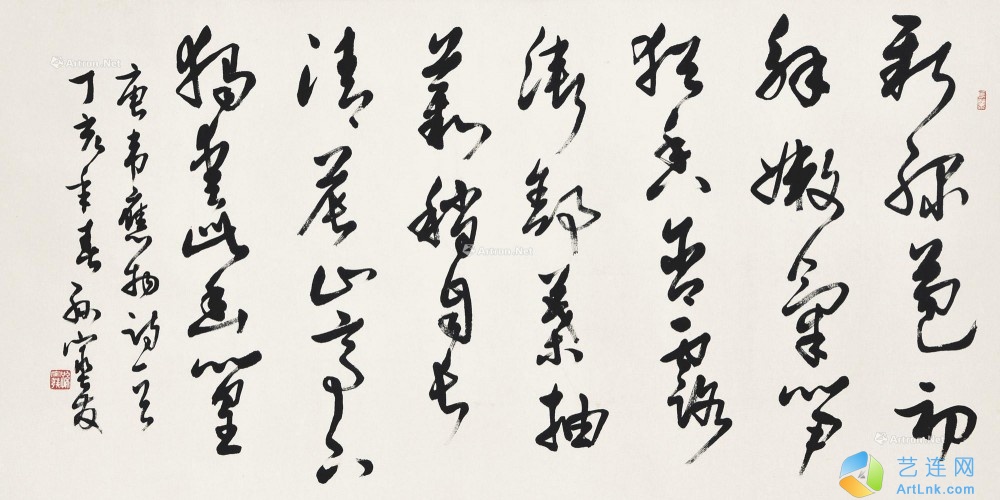 新綠苞初
解嫩氣筍
猶香含露
漸舒葉抽
叢稍自長
清晨止亭下
獨愛此幽篁
唐韋應物詩一首
丁亥年春 孫寶
Artron.Net
Artron.Net
Artron.Net
艺连网
ArtLnk.com